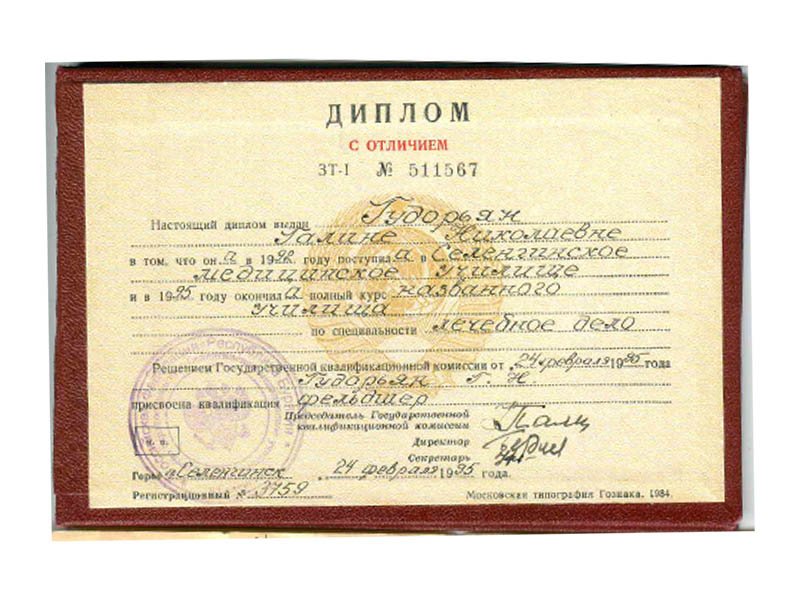 ДИПЛОМ
С ОТЛИЧИЕМ
ЗТ-I № 511567
Настоящий диплом выдан Гударьян
Галине Николаевне
в том, что он а в 1992 году поступил а в Селенгинское
медицинское училище
и в 1995 году окончил а полный курс названного
училища
по специальности лечебное дело
Решением Государственной квалификационной комиссии от 24 февраля 1995 года
Гударьян Г. Н.
присвоена квалификация фельдшер
Председатель Государственной
квалификационной комиссии
Директор
Секретарь
м. п.
Город Селенгинск 24 февраля 1995 года.
Регистрационный № 3759
Московская типография Гознака. 1984.